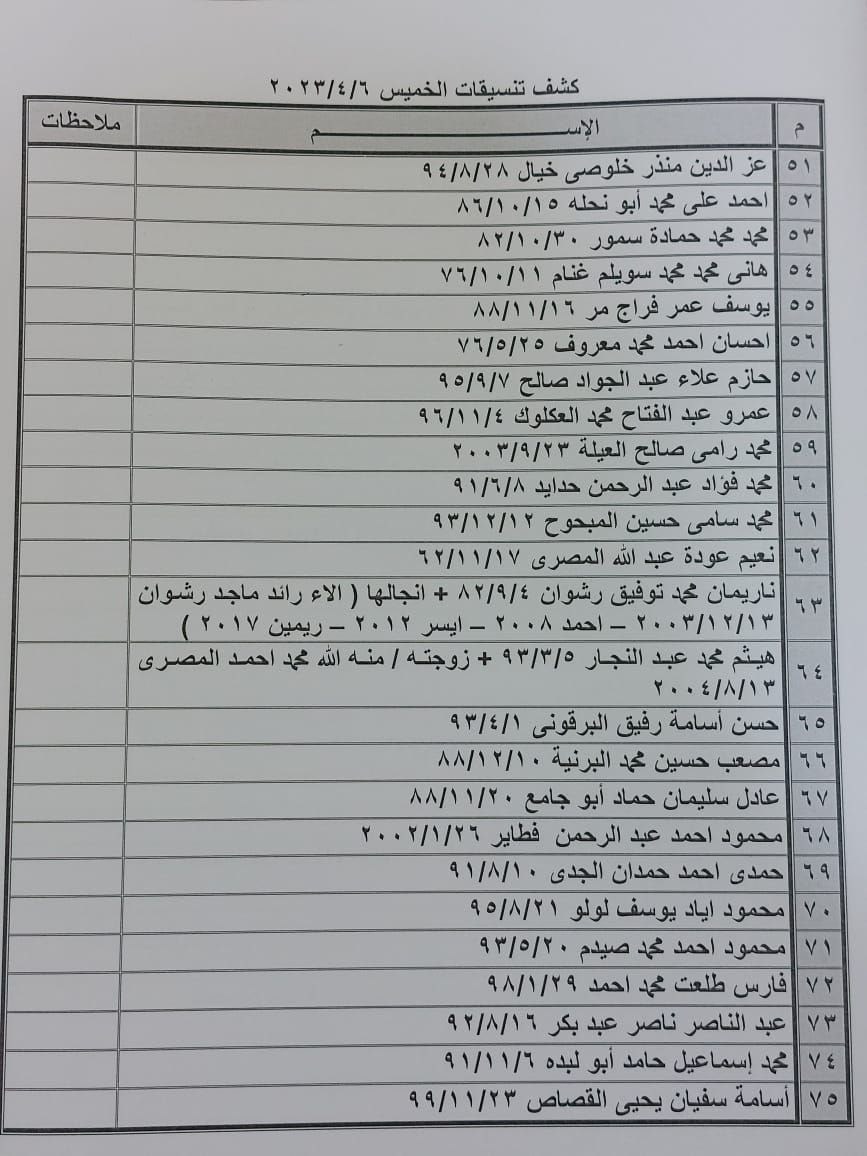 كشف تنسيقات الخميس ٢٠٢٣/٤/٦
م الإســـــــــم ملاحظات
٥١ عز الدين منذر خلوصى خيال ٩٤/٨/٢٨
٥٢ احمد على محمد أبو نحله ٨٦/١٠/١٥
٥٣ محمد محمد حمادة سمور ٨٢/١٠/٣٠
٥٤ هانى محمد محمد سويلم غنام ٧٦/١٠/١١
٥٥ يوسف عمر فراج مر ٨٨/١١/١٦
٥٦ احسان احمد محمد معروف ٧٦/٥/٢٥
٥٧ حازم علاء عبد الجواد صالح ٩٥/٩/٧
٥٨ عمرو عبد الفتاح محمد العكلوك ٩٦/١١/٤
٥٩ محمد رامى صالح العيلة ٢٠٠٣/٩/٢٣
٦٠ محمد فؤاد عبد الرحمن حدايد ٩١/٦/٨
٦١ محمد سامى حسين المبحوح ٩٣/١٢/١٢
٦٢ نعيم عودة عبد الله المصرى ٦٢/١١/١٧
٦٣ ناريمان محمد توفيق رشوان ٨٢/٩/٤ + انجالها ( الاء رائد ماجد رشوان
٢٠٠٣/١٢/١٣ – احمد ٢٠٠٨ – ايسر ٢٠١٢ – ريمين ٢٠١٧ )
٦٤ هيثم محمد عبد النجار ٩٣/٣/٥ + زوجته / منه الله محمد احمد المصرى
٢٠٠٤/٨/١٣
٦٥ حسن أسامة رفيق البرقونى ٩٣/٤/١
٦٦ مصعب حسين محمد البرنية ٨٨/١٢/١٠
٦٧ عادل سليمان حماد أبو جامع ٨٨/١١/٢٠
٦٨ محمود احمد عبد الرحمن فطاير ٢٠٠٢/١/٢٦
٦٩ حمدى احمد حمدان الجدى ٩١/٨/١٠
٧٠ محمود اياد يوسف لولو ٩٥/٨/٢١
٧١ محمود احمد محمد صيدم ٩٣/٥/٢٠
٧٢ فارس طلعت محمد احمد ٩٨/١/٢٩
٧٣ عبد الناصر ناصر عبد بكر ٩٢/٨/١٦
٧٤ محمد إسماعيل حامد أبو لبده ٩١/١١/٦
٧٥ أسامة سفيان يحيى القصاص ٩٩/١١/٢٣